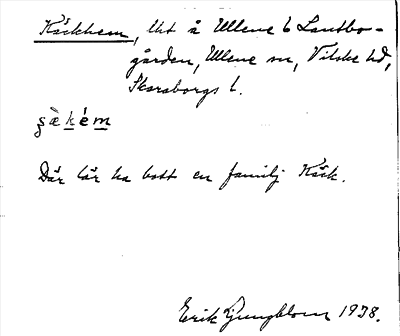 Käckhem, lht å Ullene 6 Lantbo-
gården, Ullene sn, Vilske hd,
Skaraborgs l.
Där lär ha bott en familj Käck.
Erik Ljungblom 1938.